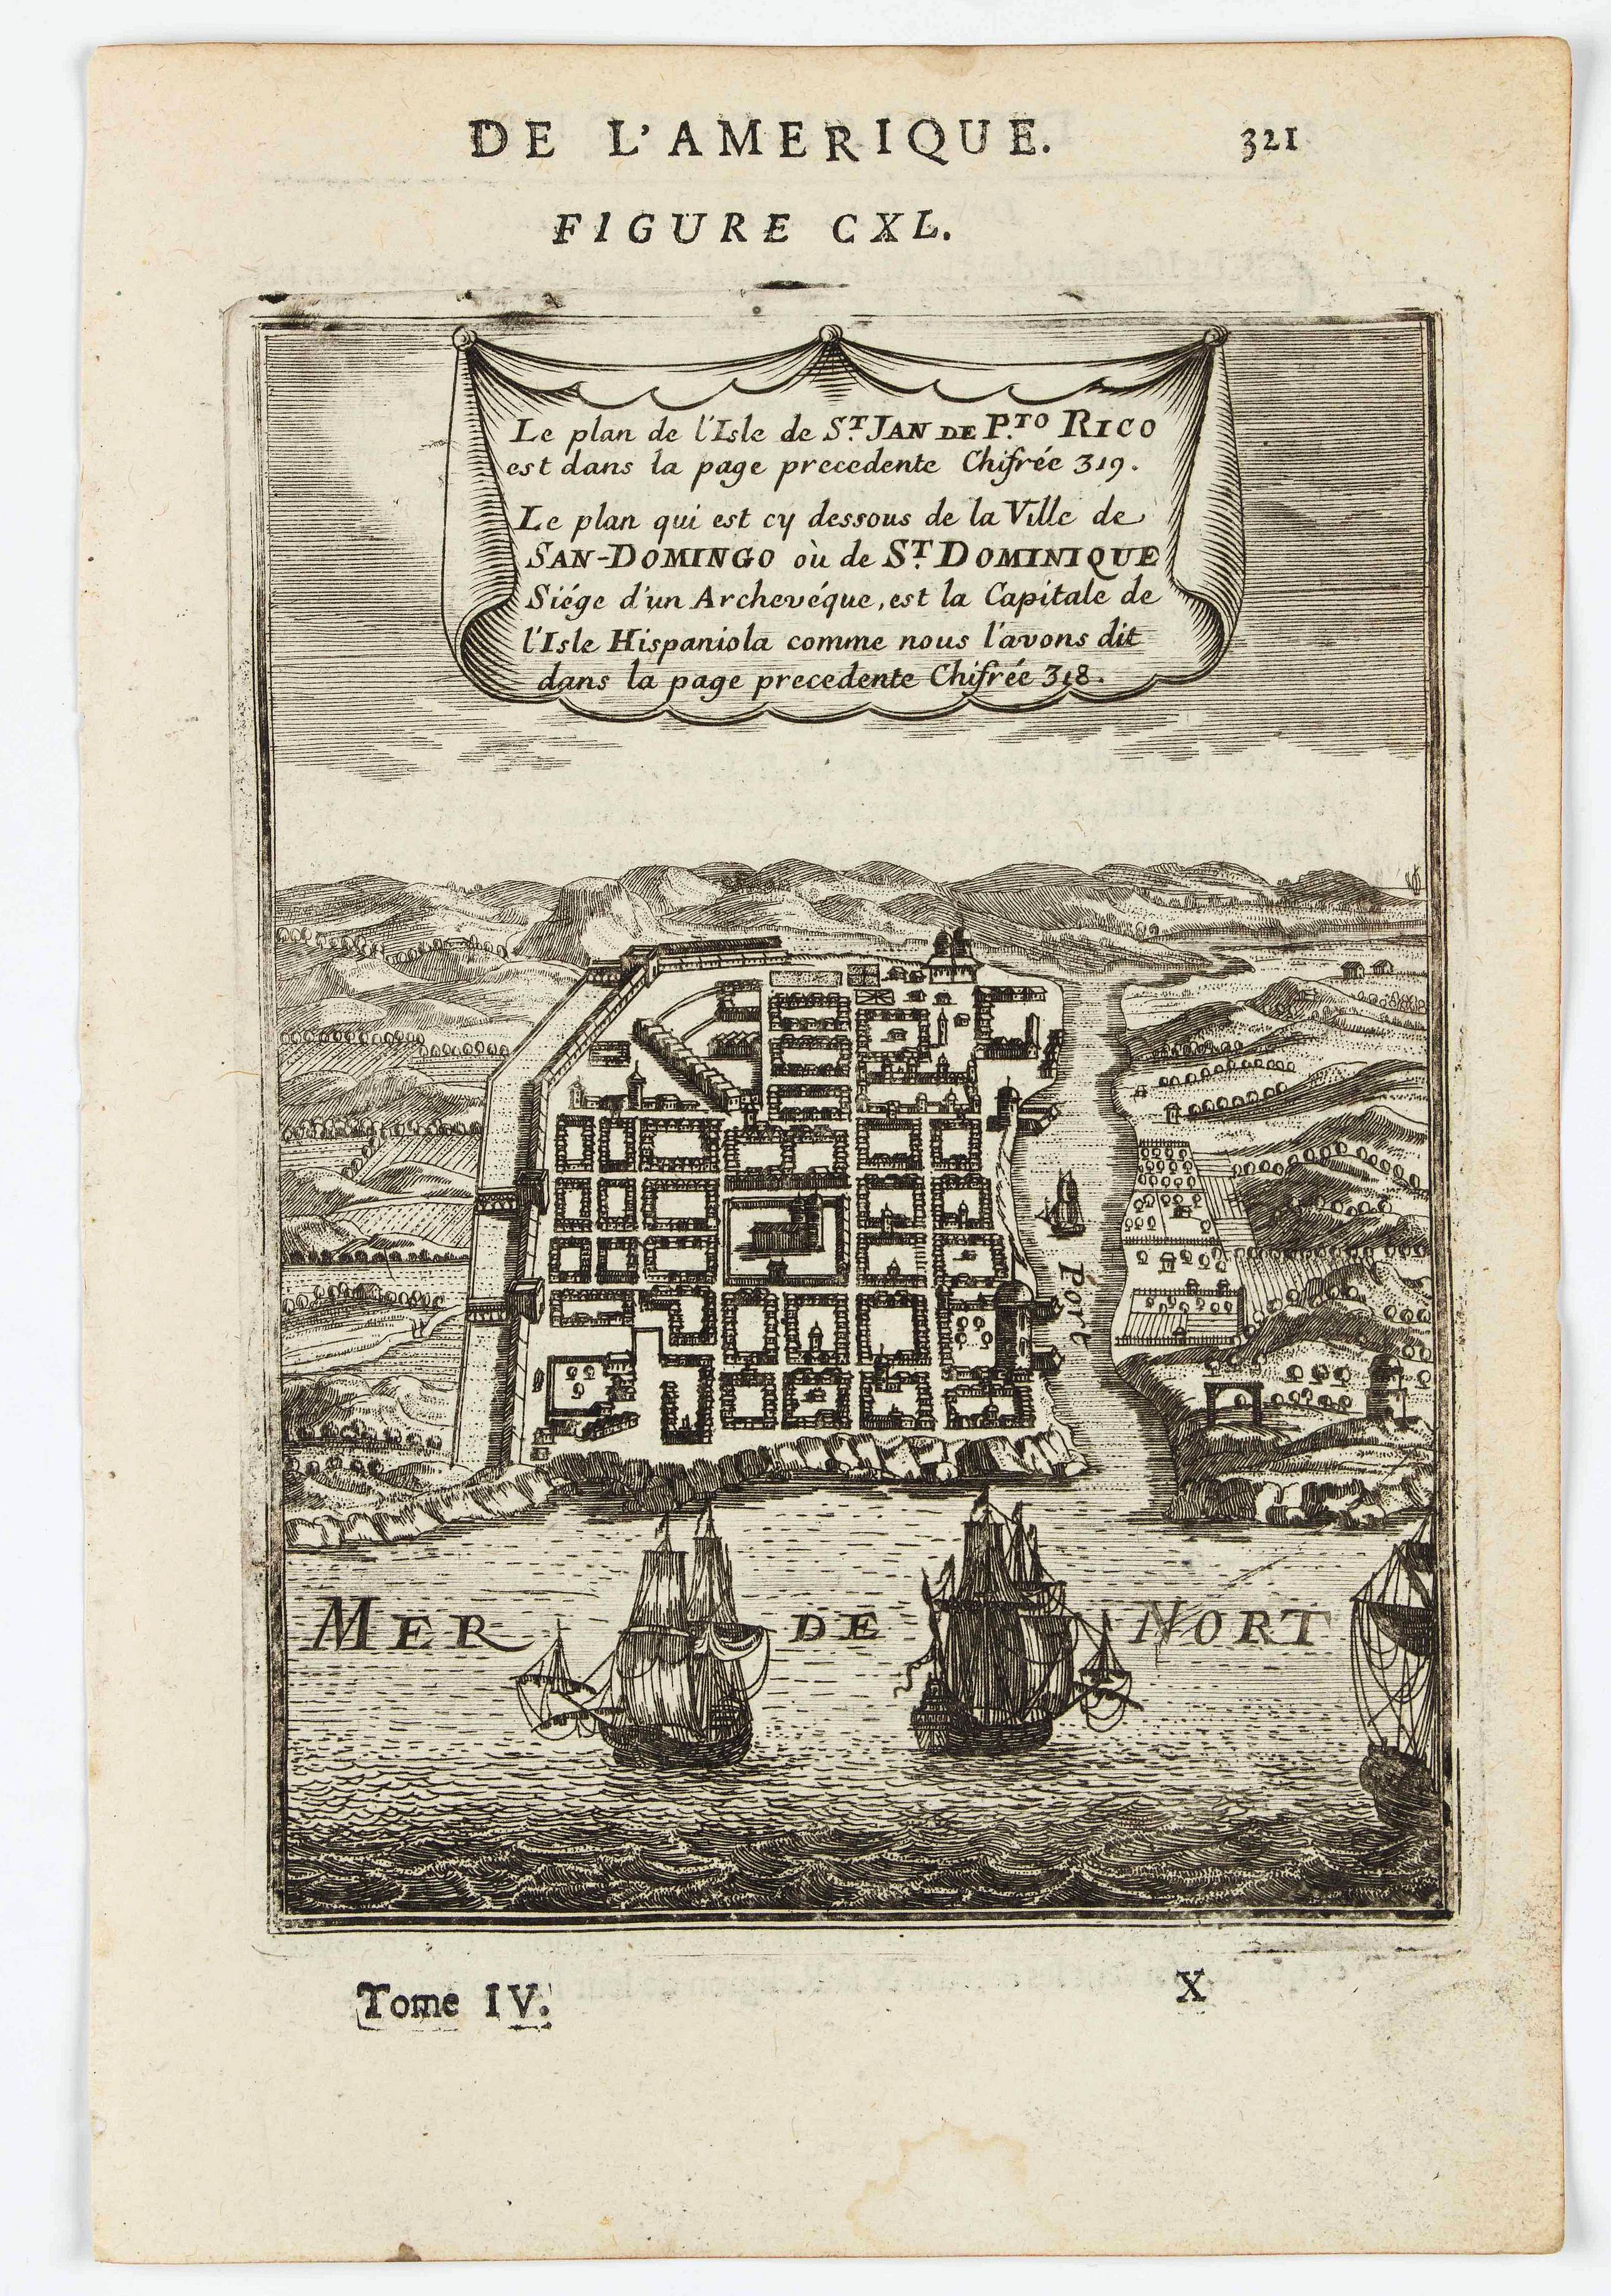 DE L'AMERIQUE. 321
FIGURE CXL.
Le plan de l'Isle de S.T JAN DE P.TO RICO
est dans la page precedente Chifrée 319.
Le plan qui est cy dessous de la Ville de
SAN-DOMINGO où de S.T DOMINIQUE
Siége d'un Archevéque, est la Capitale de
l'Isle Hispaniola comme nous l'avons dit
dans la page precedente Chifrée 318.
Port
MER DE NORT
Tome IV. X